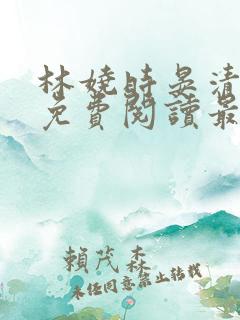 林嬈時晏清
免費閱讀最
賴茂森
未經同意禁止轉載